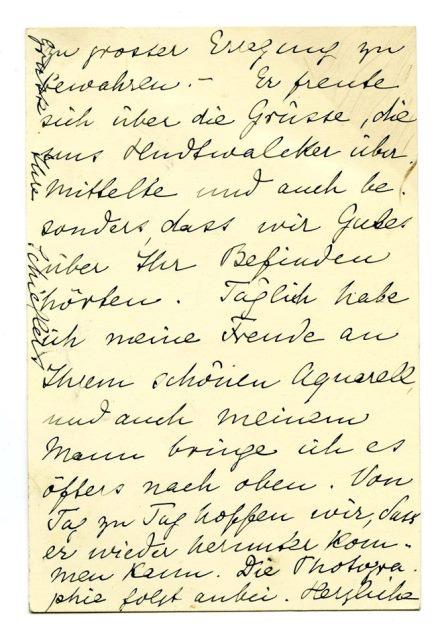 zu grosser Erregung zu
bewahren. – Er freute
sich über die Grüsse, die
uns Hudtwalcker über-
mittelte und auch be-
sonders, dass wir Gutes
über Ihr Befinden
hörten. Täglich habe
ich meine Freude an
Ihrem schönen Aquarell,
und auch meinem
Mann bringe ich es
öfters nach oben. Von
Tag zu Tag hoffen wir, dass
er wieder herunter kom-
men kann. Die Photogra-
phie folgt anbei. Herzliche
Grüsse Ihre Schieflers